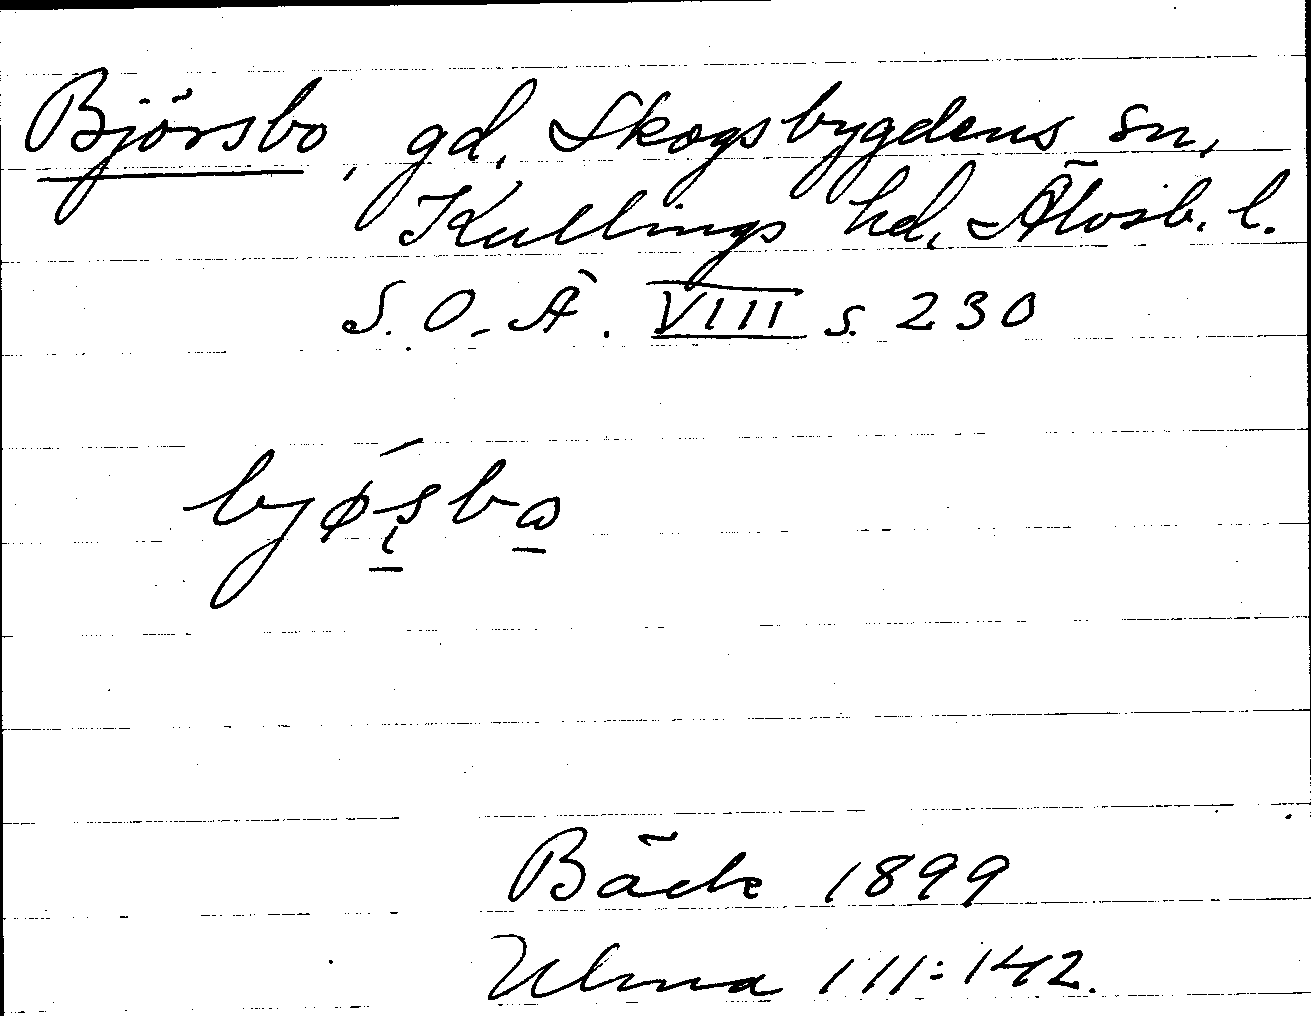 Björsbo, gd, Skogsbygdens sn,
Kullings hd, Älvsb. l.
S. O. Ä. VIII s. 230
bjǿsba
Bäck 1899
Ulma 111:142.